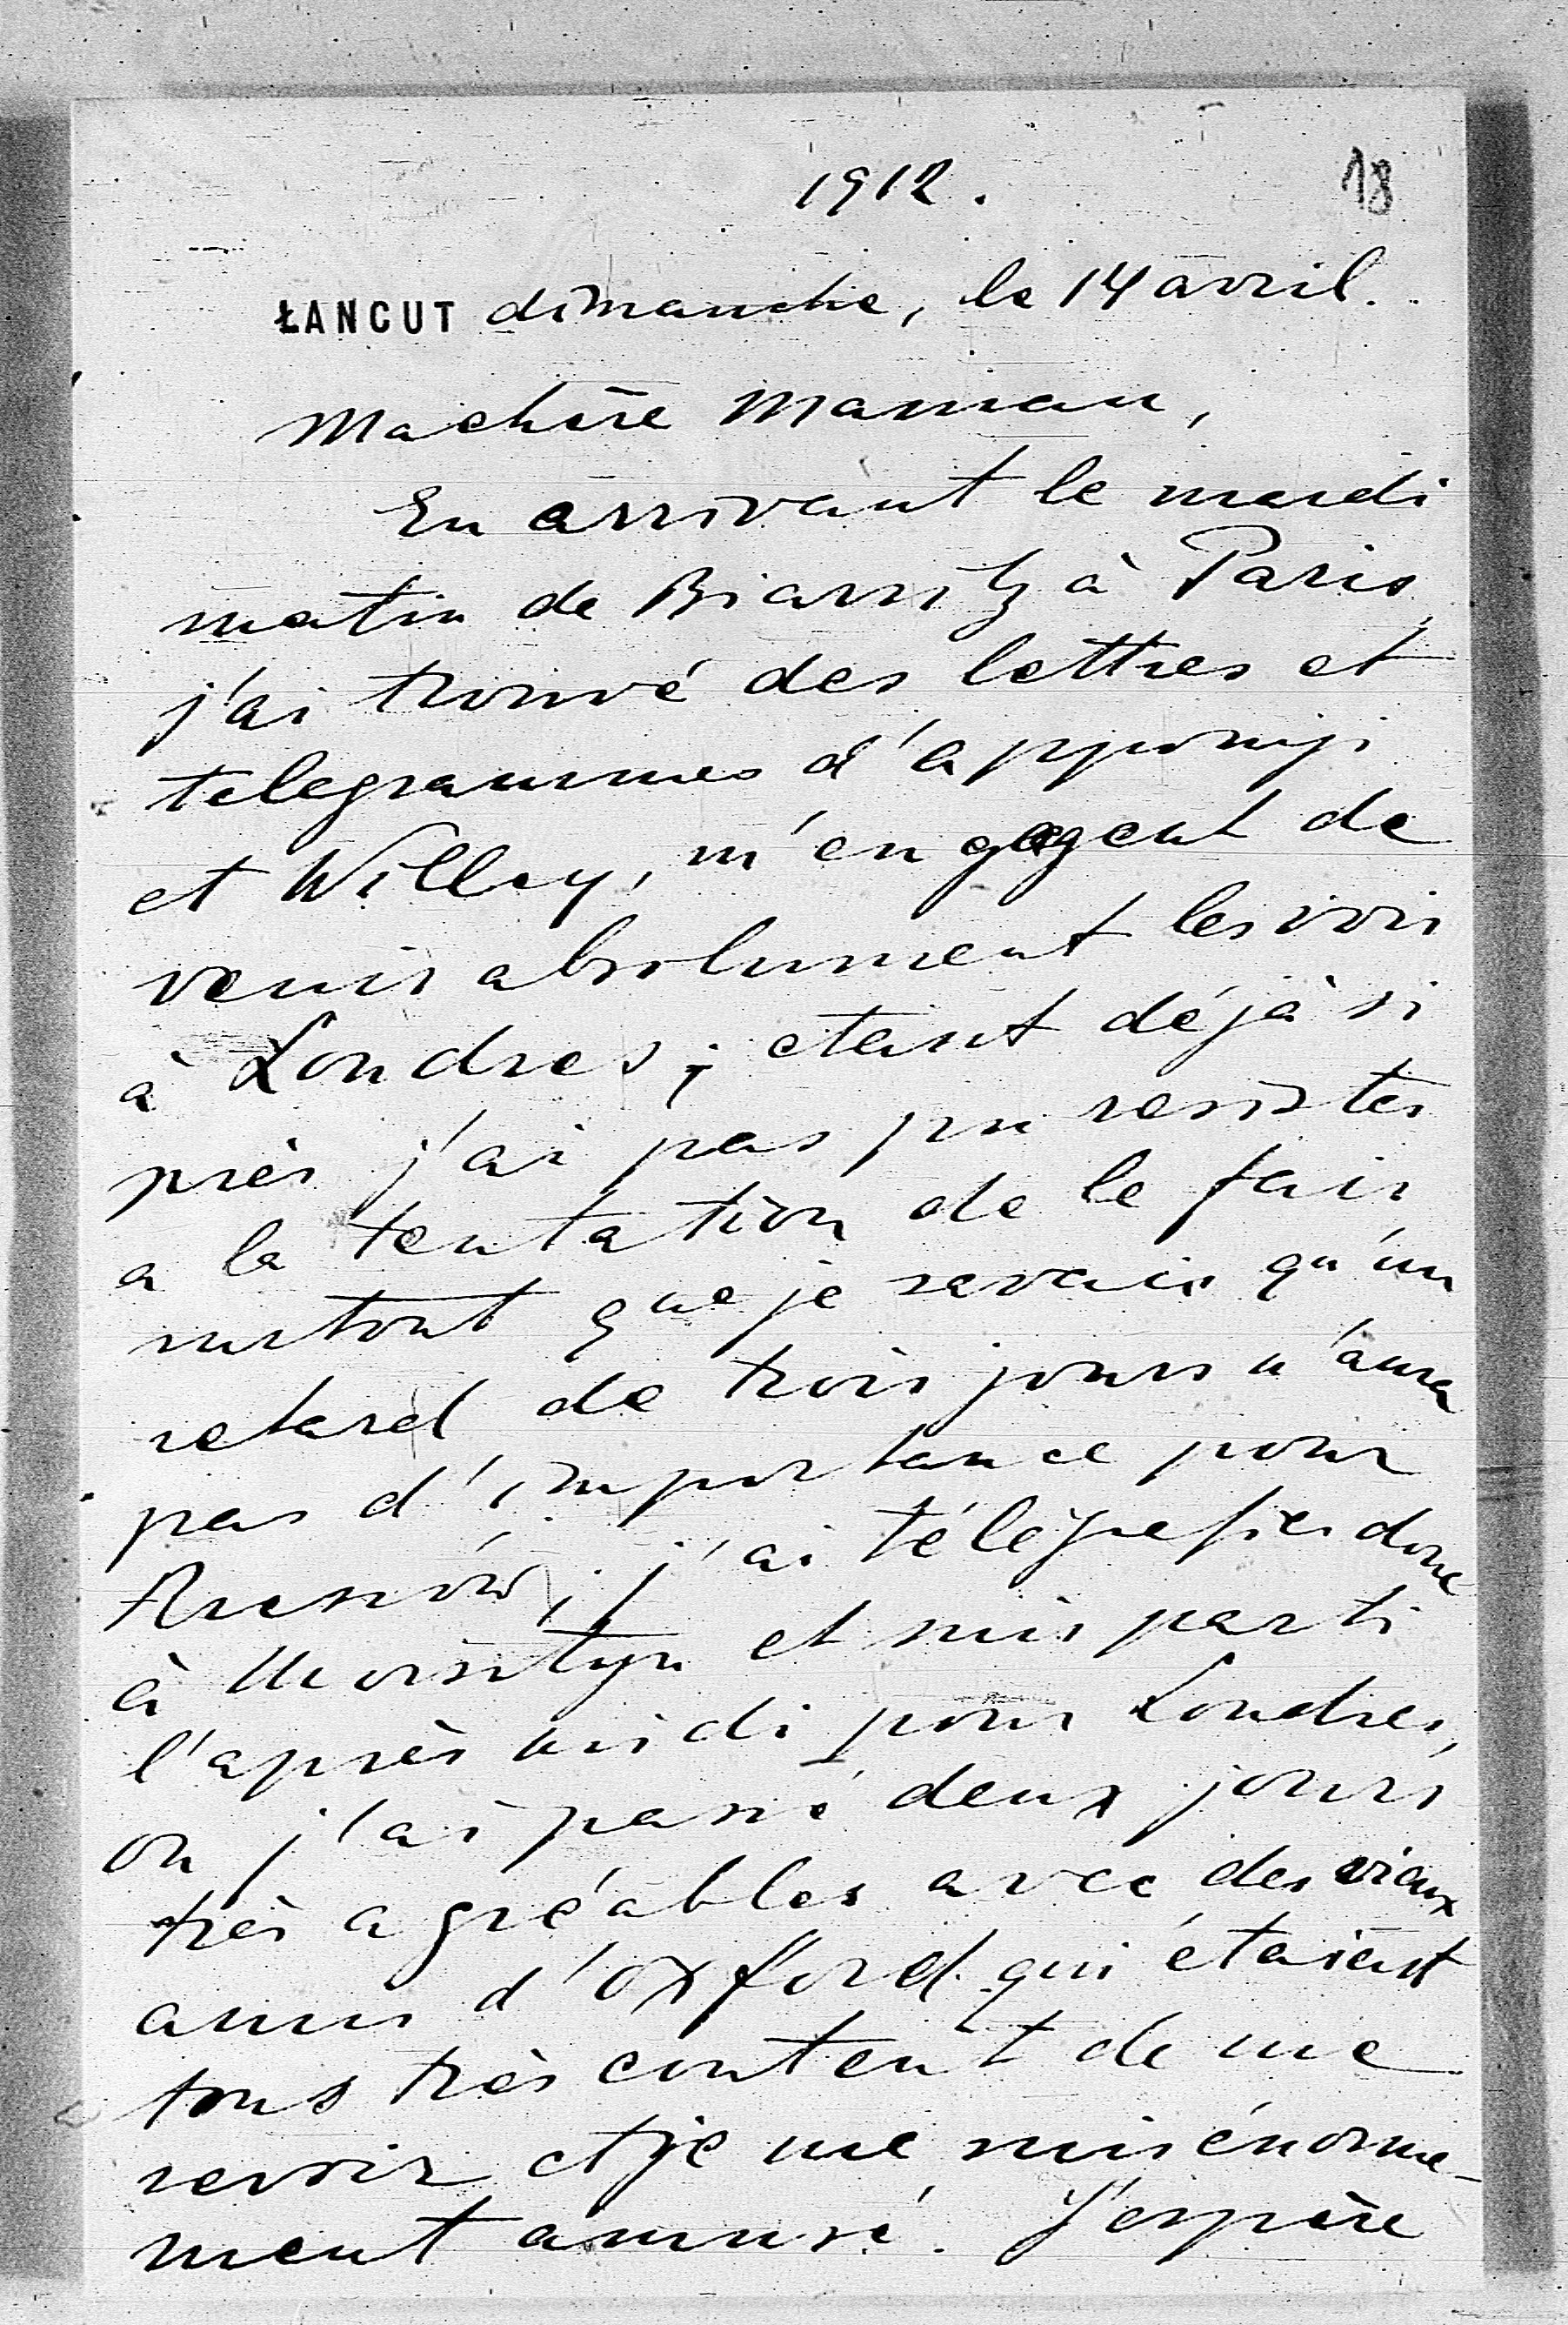 1912.
18
ŁANCUT dimanche, le 14 avril.
Ma chère Maman,
En arrivant le mardi
matin de Biarritz à Paris,
j'ai trouvé des lettres et
telegrammes d'Apponyi
et Willey, m'engagent de
venir absolument les voir
à Londres; etant déjà si
près j'ai pas pu resister
a la tentation de le fair
surtout que je savais qu'un
retard de trois jours n'aura
pas d'importance pour
j'ai télégrafier donc
à et suis parti
l'après midi pour Londres,
ou j'ai passé deux jours
très agréables avec des vieux
amis d'Oxford qui étaient
tous très content de me
revoir et je me suis énorme-
ment amusé. J'espère